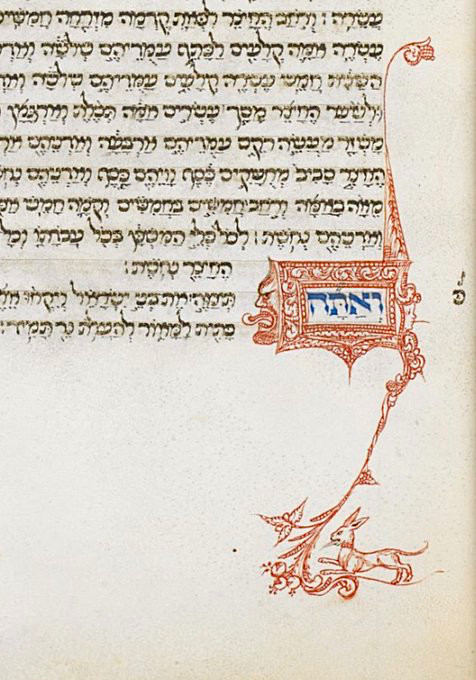 עֲשָׂרָה׃ וְרֹחַב הֶחָצֵר לִפְאַת קֵדְמָה מִזְרָחָה חֲמִשִּׁים
עֶשְׂרֵה אַמָּה קְלָעִים לַכָּתֵף עַמֻּדֵיהֶם שְׁלֹשָׁה
הַשֵּׁנִית חֲמֵשׁ עֶשְׂרֵה קְלָעִים עַמֻּדֵיהֶם שְׁלֹשָׁה
וּלְשַׁעַר הֶחָצֵר מָסָךְ עֶשְׂרִים אַמָּה תְּכֵלֶת וְאַרְגָּמָן
מָשְׁזָר מַעֲשֵׂה רֹקֵם עַמֻּדֵיהֶם אַרְבָּעָה וְאַדְנֵיהֶם
הֶחָצֵר סָבִיב מְחֻשָּׁקִים כֶּסֶף וָוֵיהֶם כָּסֶף וְאַדְנֵיהֶם
מֵאָה בָאַמָּה וְרֹחַב חֲמִשִּׁים בַּחֲמִשִּׁים וְקֹמָה חָמֵשׁ
וְאַדְנֵיהֶם נְחֹשֶׁת׃ לְכֹל כְּלֵי הַמִּשְׁכָּן בְּכֹל עֲבֹדָתוֹ וְכָל
הֶחָצֵר נְחֹשֶׁת׃
וְאַתָּה תְּצַוֶּה אֶת בְּנֵי יִשְׂרָאֵל וְיִקְחוּ
כָּתִית לַמָּאוֹר לְהַעֲלֹת נֵר תָּמִיד׃